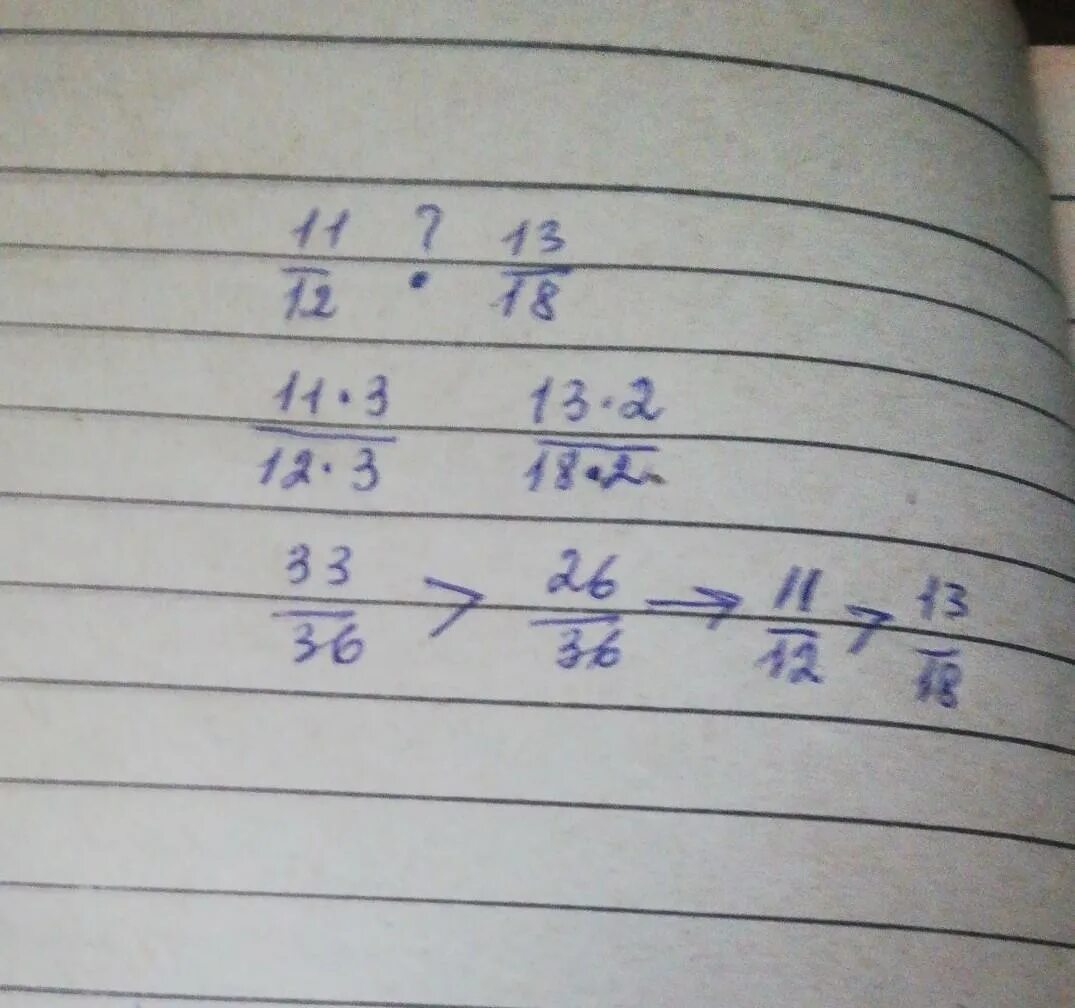 11/12 ? 13/18
11·3/12·3 13·2/18·2
33/36 > 26/36 → 11/12 > 13/18